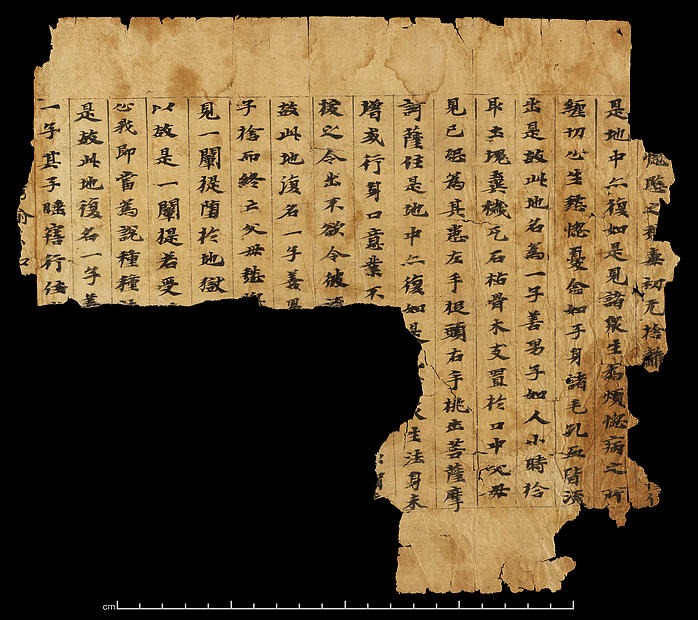 惱愍之愁毒初无捨離
是地中亦復如是見諸衆生為煩惱病之所
纏切心生愁惱憂念如子身諸毛孔血皆流
出是故此地名為一子善男子如人小時拾
取土塊糞穢瓦石枯骨木支置於口中父母
見已恐為其患左手捉頭右手挑出菩薩摩
訶薩住是地中亦復如是 生法身未
增或行身口意業不
拔之令出不欲令彼流
故此地復名一子善男
子捨而終亡父母愁惱
見一闡提墮於地獄
以故是一闡提若受
心我即當為說種種法
是故此地復名一子善
一子其子睡寤行住
cm